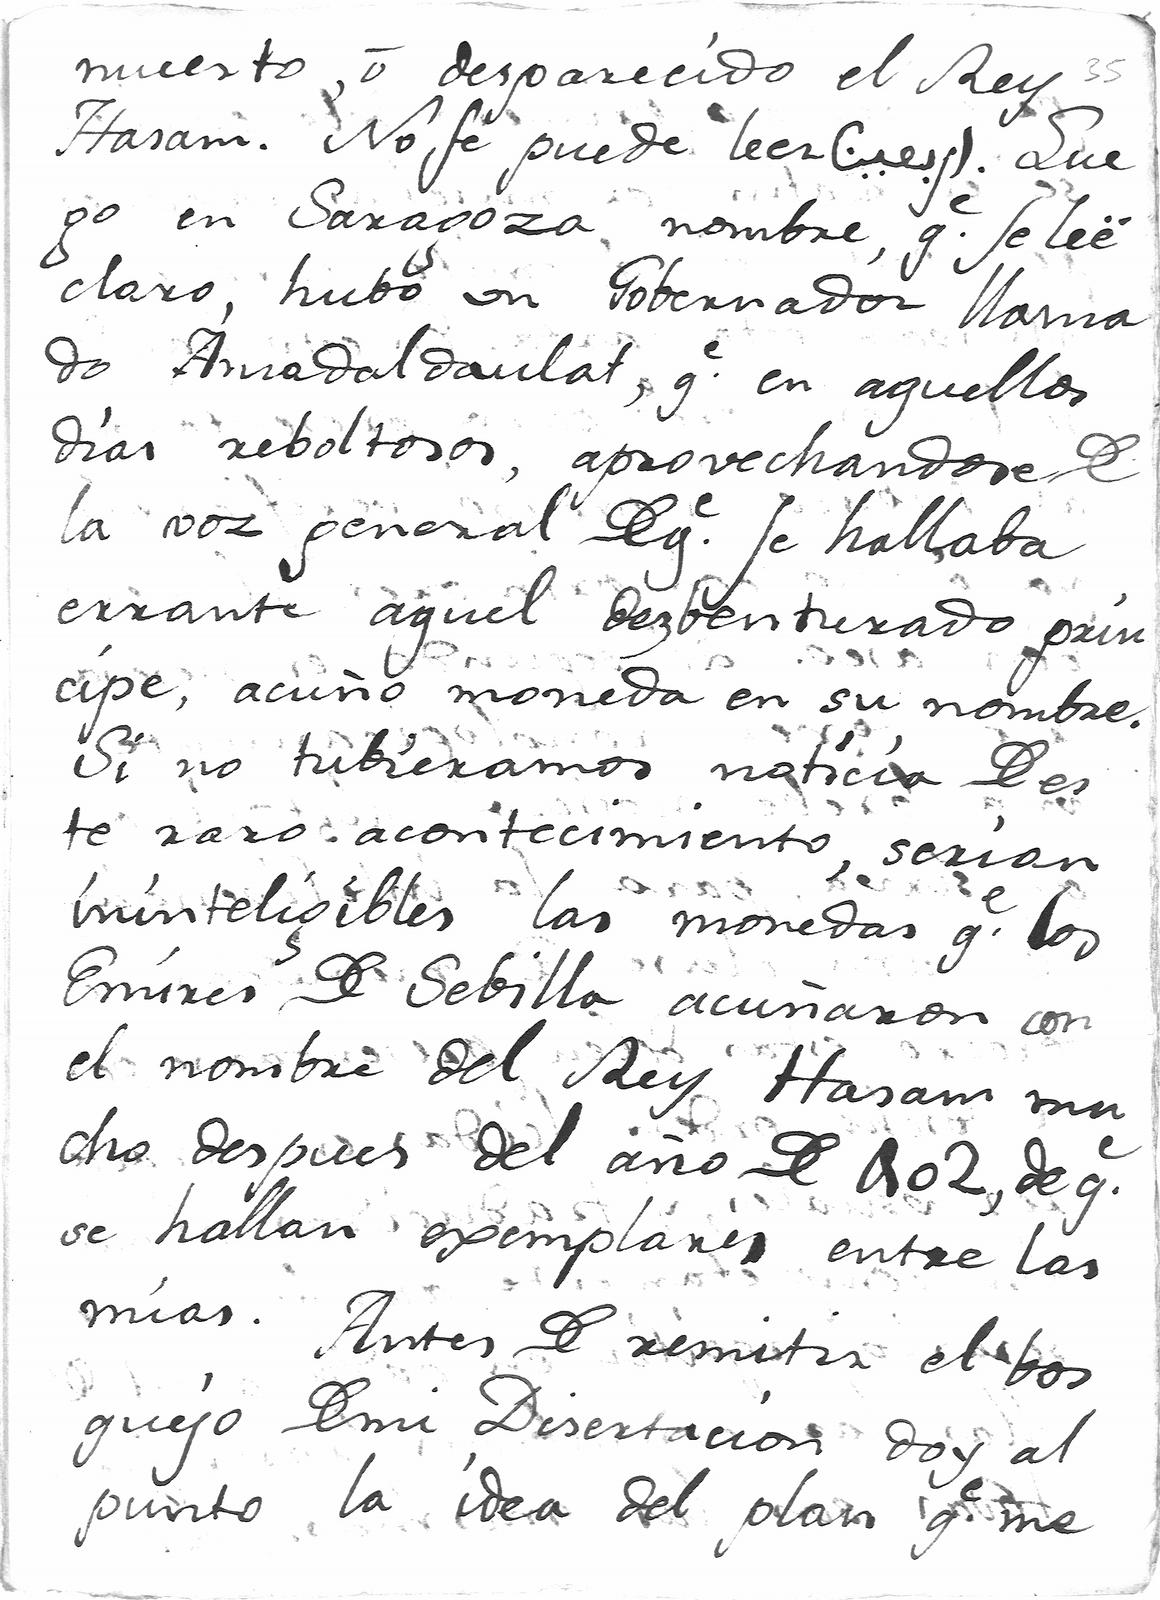 muerto, ō desparecido el Rey 35
Hasam. No se puede leer . Lue
go en Saragoza nombre, qᵉ. se leë
claro, hubo un Gobernador llama
do Ämadaldaulat, qᵉ. en aquellos
dias reboltosos, aprovechandose De
la voz general Deqᵉ. se hallaba
errante aquel dezbenturado prin
cipe, acuño moneda en su nombre.
Si no tubieramos noticia Des
te raro acontecimiento, serian
ininteligibles las monedas qᵉ. los
Emires De Sebilla acuñaron con
el nombre del Rey Hasam mu
cho despues del año De 402, de qᵉ.
se hallan exemplares entre las
mias. Antes De remitir el bos
quejo Demi Disertacion doy al
punto la idea del plan qᵉ. me